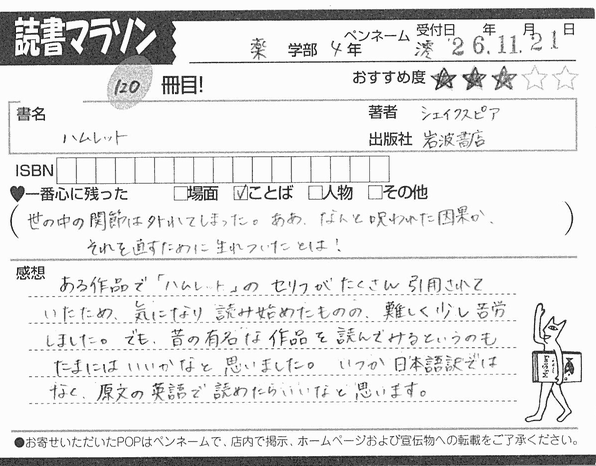 読書マラソン
薬 学部 4年 ペンネーム 澪 受付日 '26年.11月.21日
120 冊目! おすすめ度 ★★★☆☆
書名 ハムレット
著者 シェイクスピア
出版社 岩波書店
ISBN
♥一番心に残った □場面 ☑ことば □人物 □その他
(世の中の関節は外れてしまった。ああ、なんと呪われた因果か、
それを直すために生れついたとは!)
感想
ある作品で「ハムレット」の セリフがたくさん引用されて
いたため、気になり読み始めたものの、難しく少し苦労
しました。でも、昔の有名な作品を読んでみるというのも
たまにはいいかなと思いました。いつか日本語訳では
なく、原文の英語で読めたらいいなと思います。
●お寄せいただいたPOPはペンネームで、店内で掲示、ホームページおよび宣伝物への転載をご了承ください。